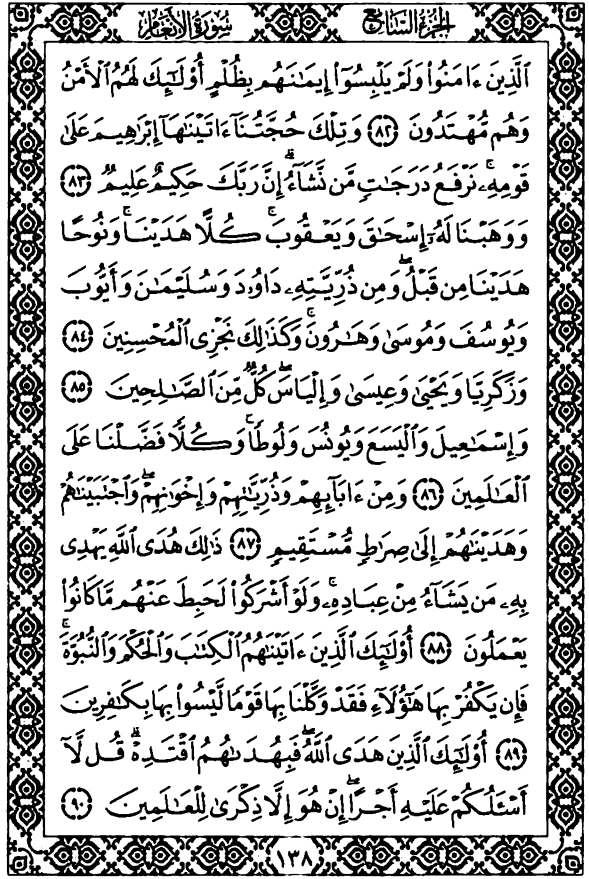 الجزء السابع سورة الأنعام
ٱلَّذِينَ ءَامَنُوا۟ وَلَمْ يَلْبِسُوٓا۟ إِيمَٰنَهُم بِظُلْمٍ أُو۟لَٰٓئِكَ لَهُمُ ٱلْأَمْنُ
وَهُم مُّهْتَدُونَ ﴿٨٢﴾ وَتِلْكَ حُجَّتُنَآ ءَاتَيْنَٰهَآ إِبْرَٰهِيمَ عَلَىٰ
قَوْمِهِۦۚ نَرْفَعُ دَرَجَٰتٍ مَّن نَّشَآءُۗ إِنَّ رَبَّكَ حَكِيمٌ عَلِيمٌ ﴿٨٣﴾
وَوَهَبْنَا لَهُۥٓ إِسْحَٰقَ وَيَعْقُوبَۚ كُلًّا هَدَيْنَاۚ وَنُوحًا
هَدَيْنَا مِن قَبْلُۖ وَمِن ذُرِّيَّتِهِۦ دَاوُۥدَ وَسُلَيْمَٰنَ وَأَيُّوبَ
وَيُوسُفَ وَمُوسَىٰ وَهَٰرُونَۚ وَكَذَٰلِكَ نَجْزِى ٱلْمُحْسِنِينَ ﴿٨٤﴾
وَزَكَرِيَّا وَيَحْيَىٰ وَعِيسَىٰ وَإِلْيَاسَۖ كُلٌّ مِّنَ ٱلصَّٰلِحِينَ ﴿٨٥﴾
وَإِسْمَٰعِيلَ وَٱلْيَسَعَ وَيُونُسَ وَلُوطًاۚ وَكُلًّا فَضَّلْنَا عَلَى
ٱلْعَٰلَمِينَ ﴿٨٦﴾ وَمِنْ ءَابَآئِهِمْ وَذُرِّيَّٰتِهِمْ وَإِخْوَٰنِهِمْۖ وَٱجْتَبَيْنَٰهُمْ
وَهَدَيْنَٰهُمْ إِلَىٰ صِرَٰطٍ مُّسْتَقِيمٍ ﴿٨٧﴾ ذَٰلِكَ هُدَى ٱللَّهِ يَهْدِى
بِهِۦ مَن يَشَآءُ مِنْ عِبَادِهِۦۚ وَلَوْ أَشْرَكُوا۟ لَحَبِطَ عَنْهُم مَّا كَانُوا۟
يَعْمَلُونَ ﴿٨٨﴾ أُو۟لَٰٓئِكَ ٱلَّذِينَ ءَاتَيْنَٰهُمُ ٱلْكِتَٰبَ وَٱلْحُكْمَ وَٱلنُّبُوَّةَۚ
فَإِن يَكْفُرْ بِهَا هَٰٓؤُلَآءِ فَقَدْ وَكَّلْنَا بِهَا قَوْمًا لَّيْسُوا۟ بِهَا بِكَٰفِرِينَ
﴿٨٩﴾ أُو۟لَٰٓئِكَ ٱلَّذِينَ هَدَى ٱللَّهُۖ فَبِهُدَىٰهُمُ ٱقْتَدِهْۗ قُل لَّآ
أَسْـَٔلُكُمْ عَلَيْهِ أَجْرًاۖ إِنْ هُوَ إِلَّا ذِكْرَىٰ لِلْعَٰلَمِينَ ﴿٩٠﴾
١٣٨